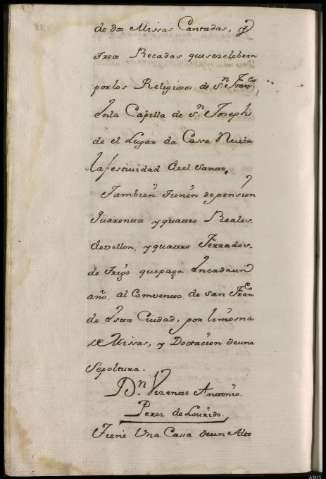 de dos Missas Cantadas, y
tres Recadas que se celebran
por los Religiosos de Sn. Franco,
en la Capilla de Sn. Joseph
de el Lugar da Cassa Nueba
la festividad del Santo,
Tambien tienen de pension
quarenta y quatro Reales
de vellon, y quatro ferrados
de trigo que paga en cada un
año al Convento de San Franco
de esta Ciudad, por limosna
de Missas, y Dotacion de una
Sepoltura.
Dn. Antonio
Perez de
Tiene Una Cassa de un Alto